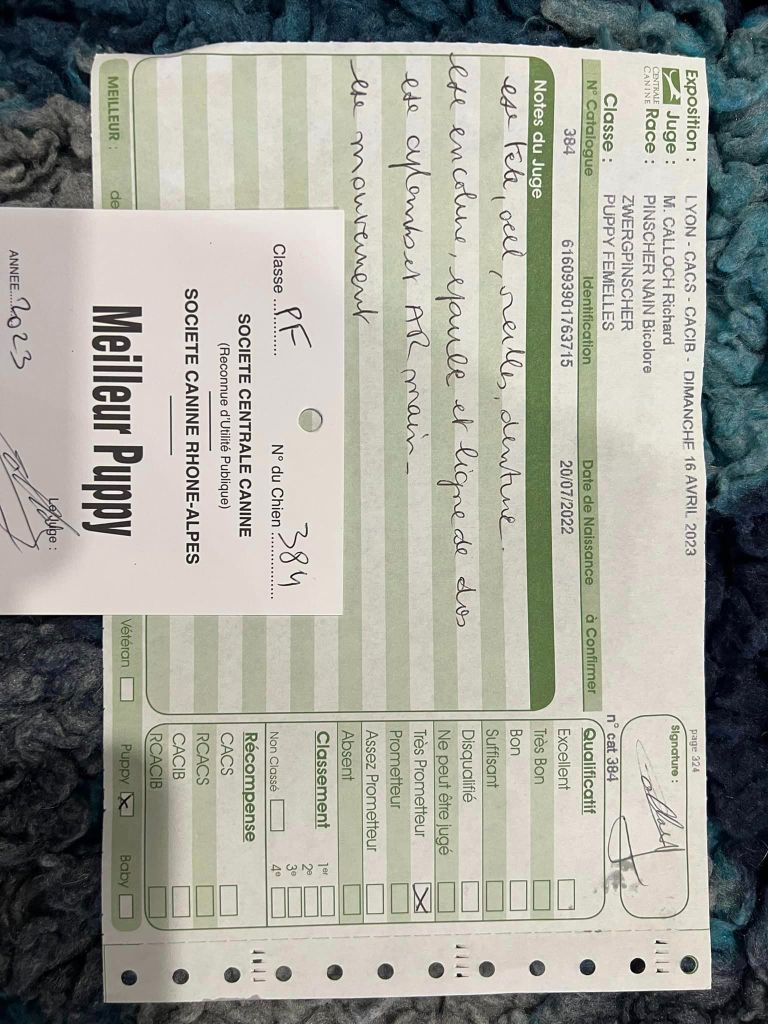 page 324
Exposition : LYON - CACS - CACIB - DIMANCHE 16 AVRIL 2023
Juge : M. CALLOCH Richard
CENTRALE CANINE
Race : PINSCHER NAIN Bicolore
ZWERGPINSCHER
Classe : PUPPY FEMELLES
Signature :
n° cat 384
N° Catalogue Identification Date de Naissance à Confirmer
384 616093901763715 20/07/2022
Notes du Juge
tête, oeil, oreilles, denture.
encolure, épaule et ligne de dos
AR, main
mouvement
Qualificatif
Excellent
Très Bon
Bon
Suffisant
Disqualifié
Ne peut être jugé
Très Prometteur X
Prometteur
Assez Prometteur
Absent
Classement
1er
2e
Non Classé 3e
4e
Récompense
CACS
RCACS
CACIB
RCACIB
MEILLEUR : de
Vétéran Puppy X Baby
Classe PF N° du Chien 384
SOCIETE CENTRALE CANINE
(Reconnue d'Utilité Publique)
SOCIETE CANINE RHONE-ALPES
Meilleur Puppy
Le Juge :
ANNEE 2023